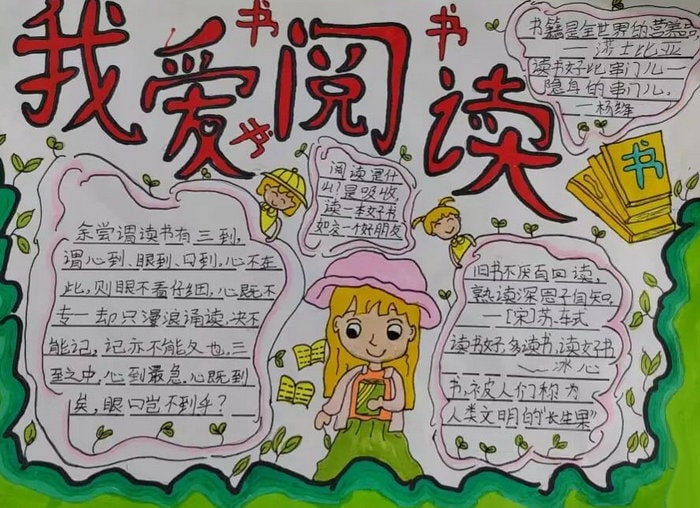 我爱阅读
书
书
书
书籍是全世界的营养品
—莎士比亚
读书好比串门儿—
隐身的串门儿.
—杨绛
书
阅读是什
么?是吸收,
读一本好书,
如交一个好朋友
余尝谓读书有三到,
谓心到、眼到、口到。心不在
此,则眼不看仔细,心既不
专一却只漫浪诵读,决不
能记,记亦不能久也,三
至之中,心到最急。心既到
矣,眼口岂不到乎?
旧书不厌百回读,
熟读深思子自知。
—[宋]苏轼
读书好,多读书,读好书
—冰心
书,被人们称为
人类文明的"长生果"